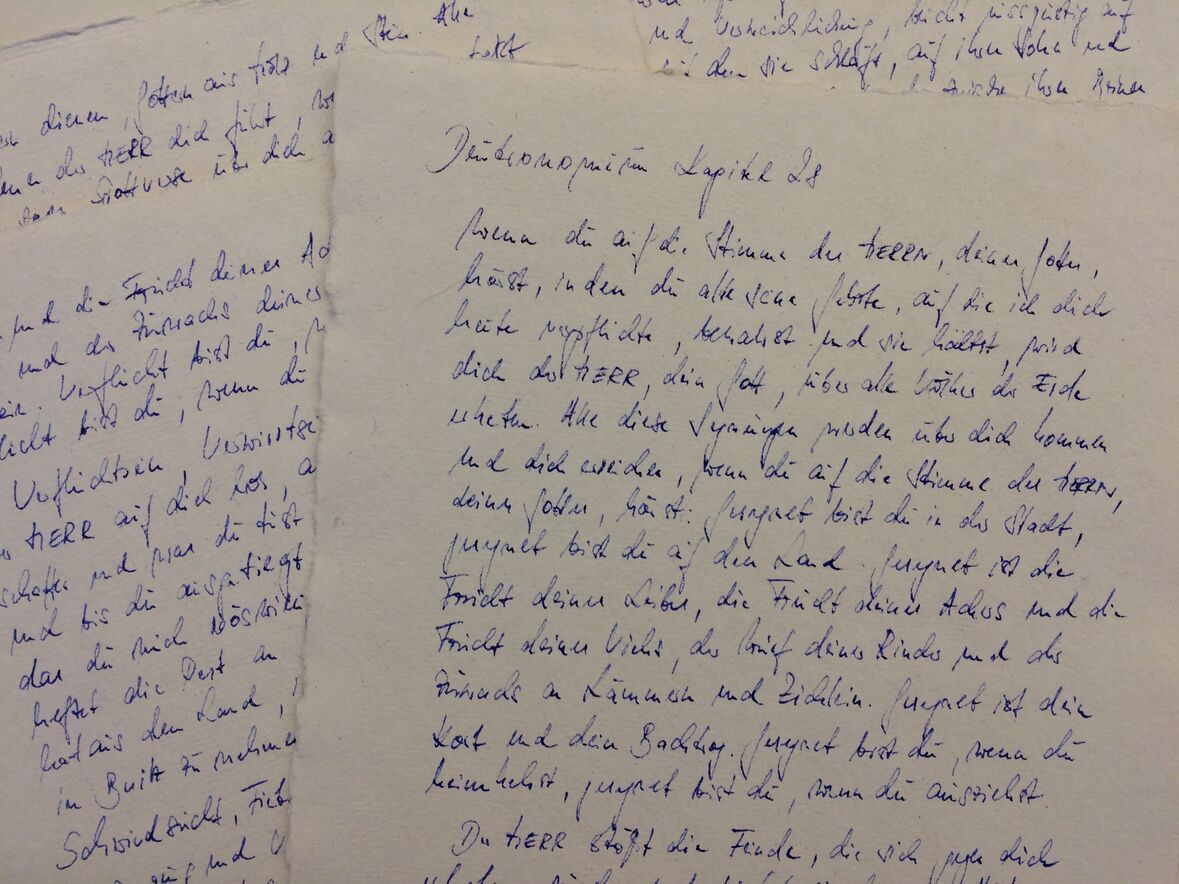 dienen, Göttern aus Holz und Stein. Alle
der HERR dich führt,
über dich
und die Frucht deines
und der Zuwachs deiner
Verflucht bist du,
bist du, wenn du
Verfluchtsein, Verwirrtsein
HERR auf dich los,
schaffen und was du tust
und bis du ausgetilgt
du mich böswillig
heftet die Pest an
hat aus dem Land,
in Besitz zu nehmen
Schwindsucht,
und
und Verweichlichung, blickt missgünstig auf
mit dem sie schläft, auf ihren Sohn und
ihren Beinen
Deuteronomium Kapitel 28
Wenn du auf die Stimme des HERRN, deines Gottes,
hörst, indem du alle seine Gebote, auf die ich dich
heute verpflichte, bewahrst und sie hältst, wird
dich der HERR, dein Gott, über alle Völker der Erde
erheben. Alle diese Segnungen werden über dich kommen
und dich erreichen, wenn du auf die Stimme des HERRN,
deines Gottes, hörst: Gesegnet bist du in der Stadt,
gesegnet bist du auf dem Land. Gesegnet ist die
Frucht deines Leibes, die Frucht deines Ackers und die
Frucht deines Viehs, der Wurf deiner Rinder und der
Zuwachs an Lämmern und Zicklein. Gesegnet ist dein
Korb und dein Backtrog. Gesegnet bist du, wenn du
heimkehrst, gesegnet bist du, wenn du ausziehst.
Der HERR stößt die Feinde, die sich gegen dich